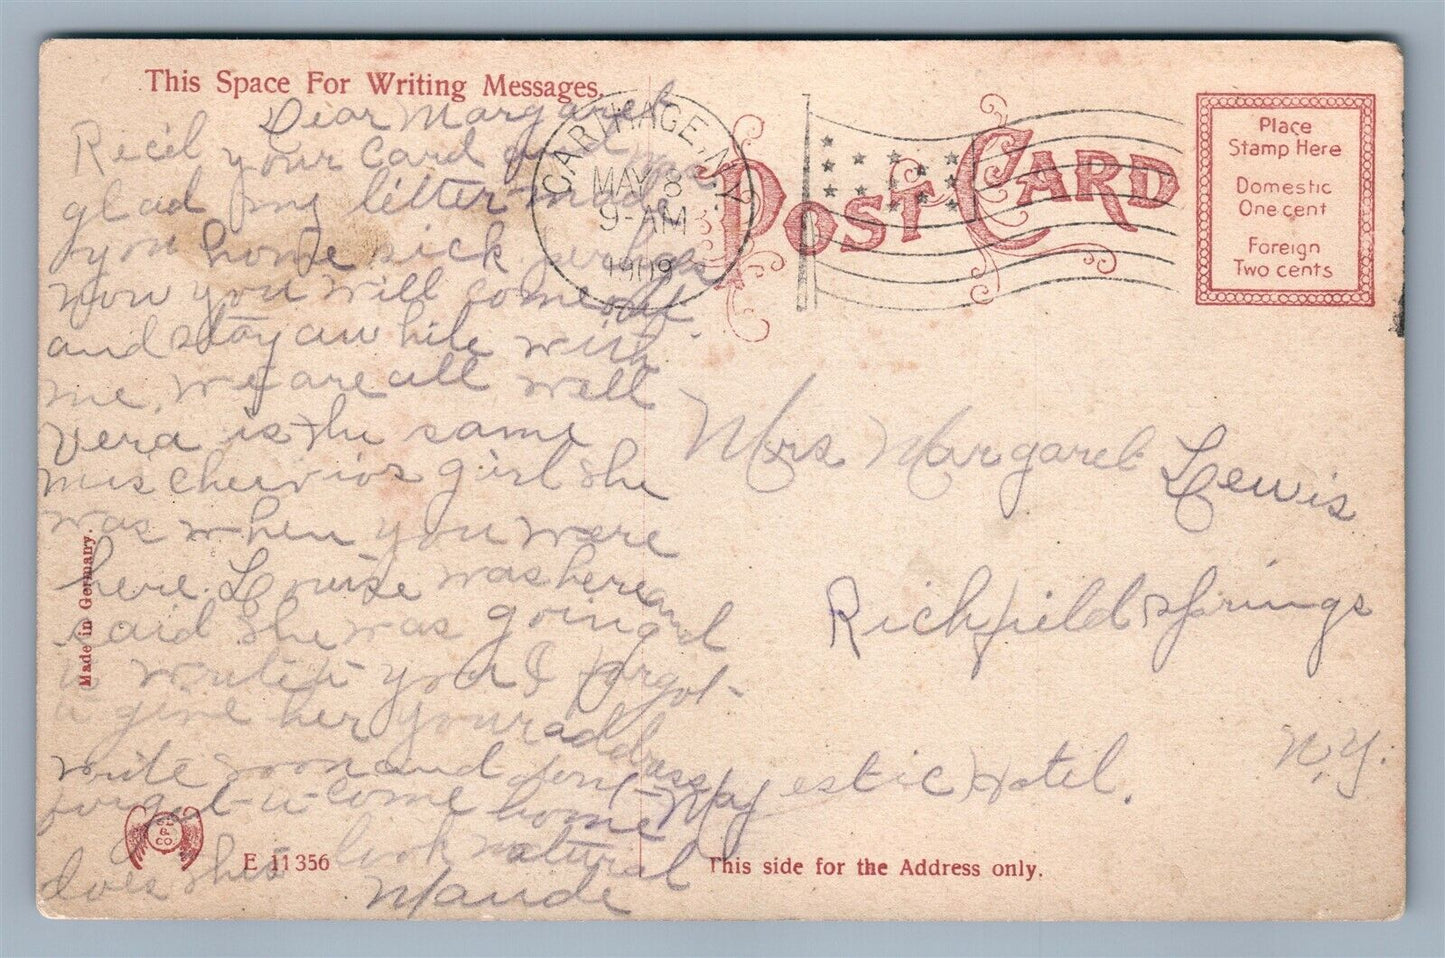 This Space For Writing Messages.
Dear Margaret
Rec'd your card and was
glad my letter made
you home sick perhaps
now you will come out
and stay awhile with
me. we are all well
Vera is the same
mischeivios girl she
was when you were
here. Louise was here and
said she was going
to write to you & I forgot
to give her your address
write soon and don't
forget to come home
does this look natural
Maude
Made in Germany.
S L & CO.
E 11356
CARTHAGE, N.Y.
MAY 8
9-AM
1909
POST CARD
Place
Stamp Here
Domestic
One cent
Foreign
Two cents
Mrs Margaret Lewis
Richfield Springs
N.Y.
Majestic Hotel.
This side for the Address only.